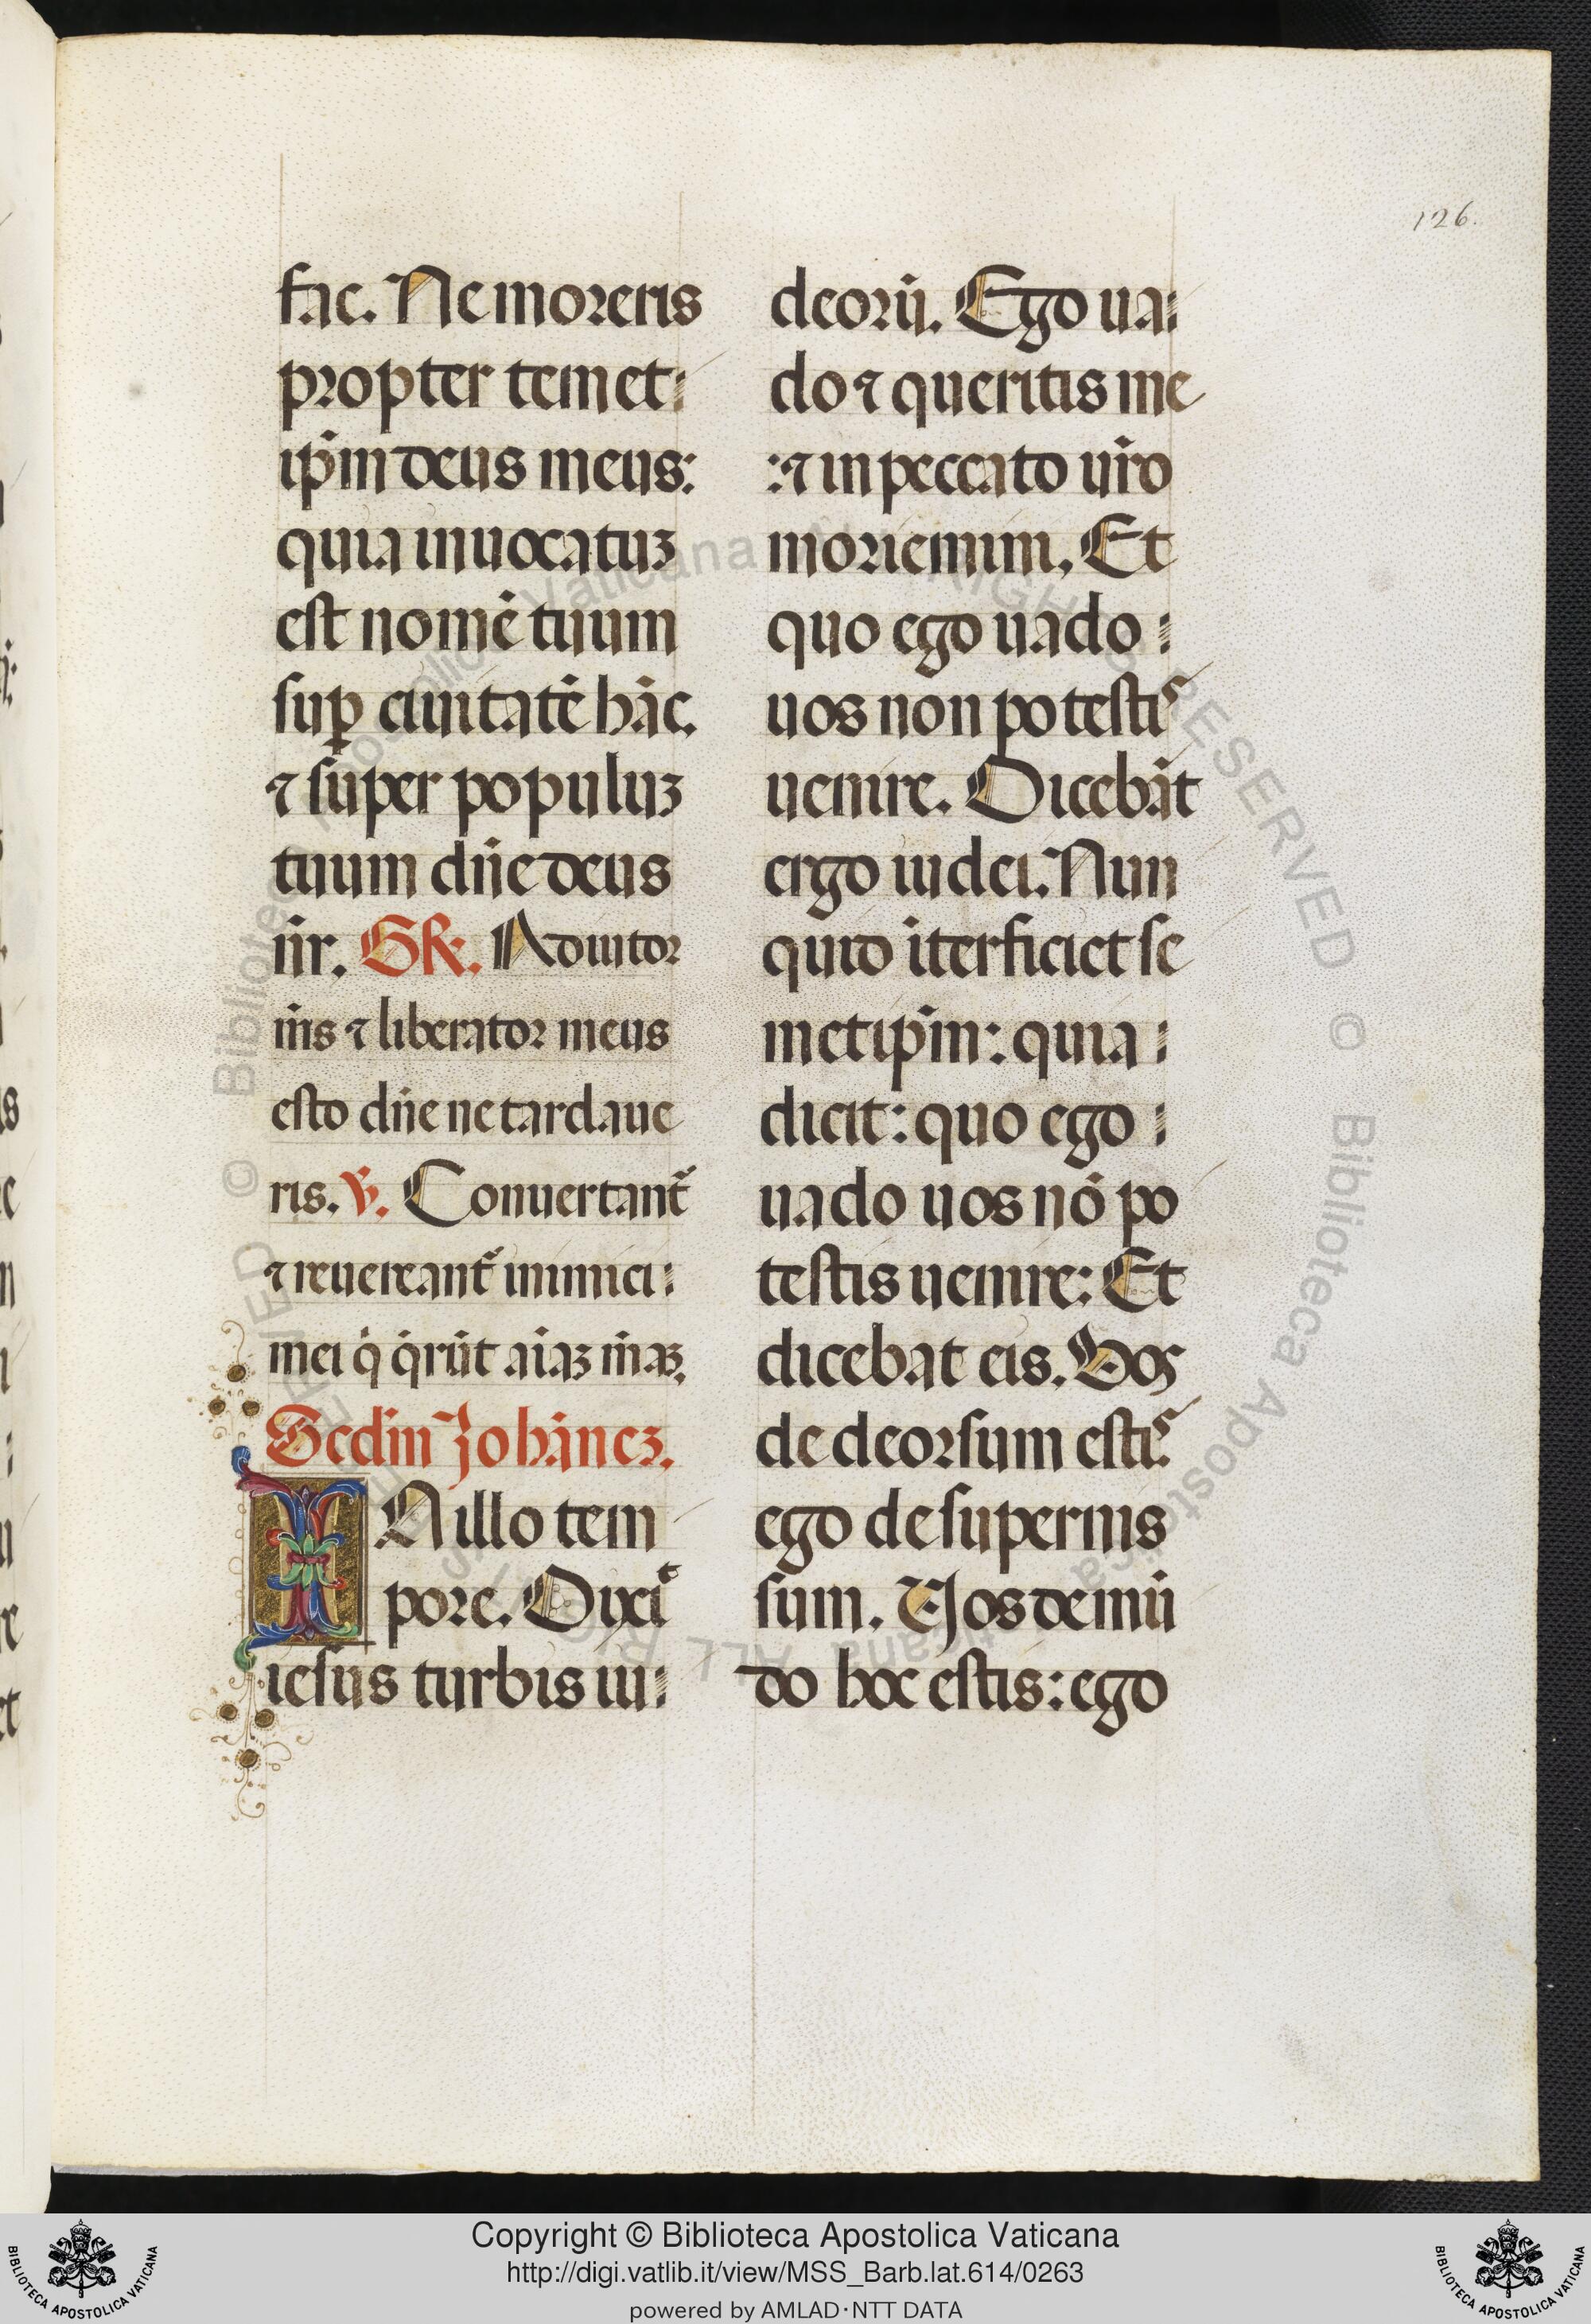 126.
fac. Ne moreris
propter temet
ip̃m deus meus:
quia inuocatuʒ
est nomẽ tuum
suꝑ ciuitatẽ hãc.
⁊ super populuʒ
tuum dñe deus
nr̃. GR. Adiutor
m̃s ⁊ liberator meus
esto dñe ne tardaue
ris. ℣. Conuertant̃
⁊ reuereant̃ inimici
mei q̇ q̇rũt aĩaʒ m̃aʒ.
Scdm̃ Johãneʒ.
IN illo tem
pore. Dixit
iesus turbis iu
deorũ. Ego ua
do ⁊ queritis me
:⁊ in peccato ur̃o
moriemini. Et
quo ego uado
uos non potestis
uenire. Dicebãt
ergo iudei. Nun
quid ĩterficiet se
metip̃m: quia
dicit: quo ego
uado uos nõ po
testis uenire: Et
dicebat eis. Uos
de deorsum estis
ego de supernis
sum. Uos de mũ
do hoc estis: ego
© Biblioteca Apostolica Vaticana ALL RIGHTS RESERVED
Copyright © Biblioteca Apostolica Vaticana
http://digi.vatlib.it/view/MSS_Barb.lat.614/0263
powered by AMLAD·NTT DATA
BIBLIOTECA APOSTOLICA VATICANA
BIBLIOTECA APOSTOLICA VATICANA